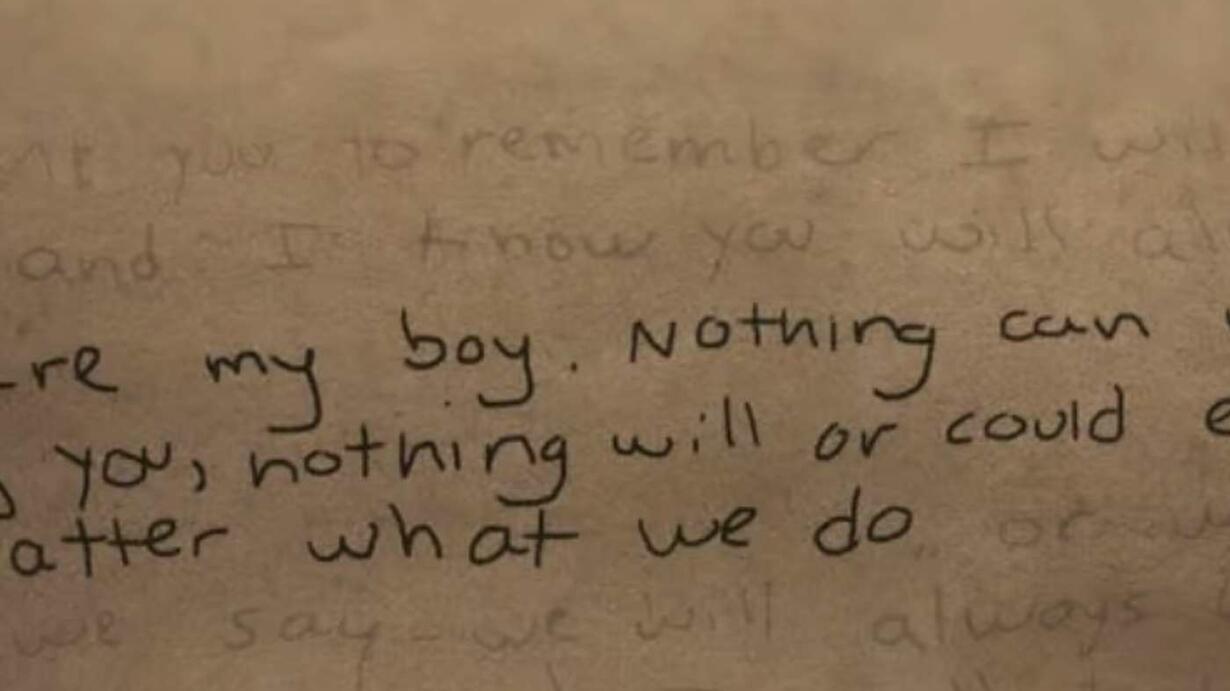 you to remember I
and I know you will
re my boy. Nothing can
you, nothing will or could
atter what we do or
we say - we will always